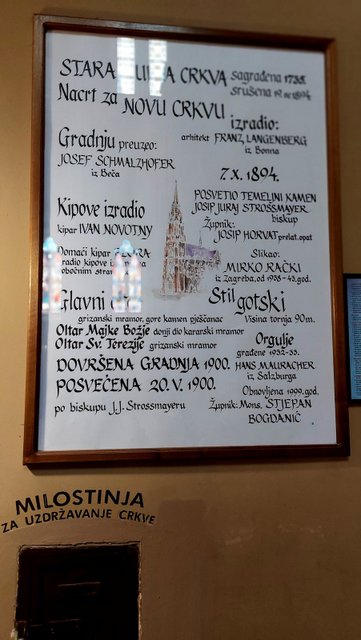 STARA CRKVA sagrađena 1735.
srušena 1894.
Nacrt za NOVU CRKVU
izradio:
arhitekt FRANZ LANGENBERG
iz Bonna
Gradnju preuzeo:
JOSEF SCHMALZHOFER
iz Beča
7.X.1894.
POSVETIO TEMELJNI KAMEN
JOSIP JURAJ STROSSMAYER
biskup
Župnik:
JOSIP HORVAT prelat. opat
Kipove izradio
kipar IVAN NOVOTNY
Domaći kipar
radio kipove
pobočnim
Slikao:
MIRKO RAČKI
iz Zagreba, od 1938-43. god.
Glavni
grizanski mramor, gore kamen pješčanac
Oltar Majke Božje donji dio kararski mramor
Oltar Sv. Terezije grizanski mramor
Stil gotski
Visina tornja 90 m.
Orgulje
građene 1932-33.
HANS MAURACHER
iz Salzburga
Obnovljena 1999. god.
Župnik: Mons. STJEPAN
BOGDANIĆ
DOVRŠENA GRADNJA 1900.
POSVEĆENA 20.V. 1900.
po biskupu J.J. Strossmayeru
MILOSTINJA
ZA UZDRŽAVANJE CRKVE